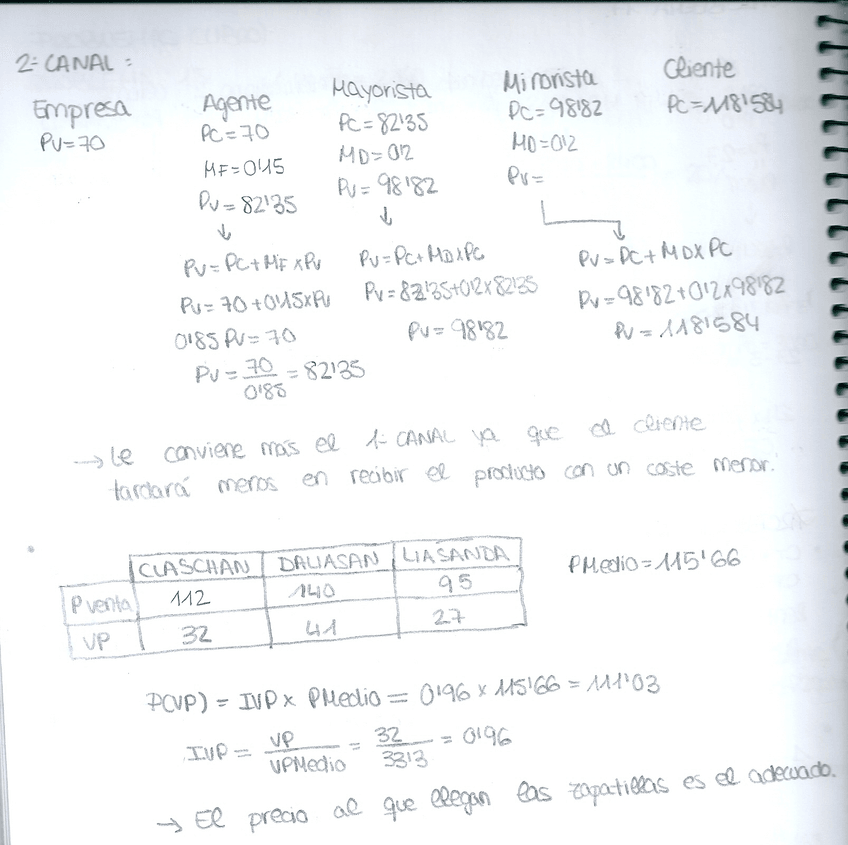 2ª CANAL:
Empresa
PV=70
Agente
PC=70
MF=0'15
PV=82'35
↓
PV=PC+MF×PV
PV=70+0'15×PV
0'85PV=70
PV=70/0'85=82'35
Mayorista
PC=82'35
MD=0'2
PV=98'82
↓
PV=PC+MD×PC
PV=82'35+0'2×82'35
PV=98'82
Minorista
PC=98'82
MD=0'2
PV=
PV=PC+MD×PC
PV=98'82+0'2×98'82
PV=118'584
Cliente
PC=118'584
→ Le conviene más el 1ª CANAL ya que el cliente
tardará menos en recibir el producto con un coste menor.
CLASCHAN DALIASAN LIASANDA
P venta 112 140 95
VP 32 41 27
PMedio=115'66
P(VP) = IVP × PMedio = 0'96 × 115'66 = 111'03
IVP = VP/VPMedio = 32/33'3 = 0'96
→ El precio al que llegan las zapatillas es el adecuado.